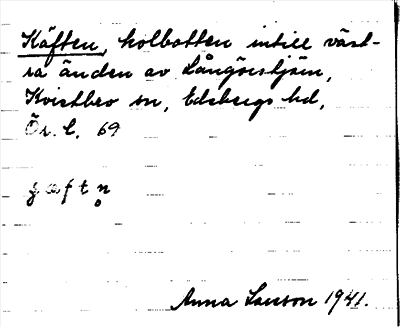 Käften, kolbotten intill väst-
ra änden av Långörstjärn,
Kvistbro sn, Edsbergs hd,
Ör. l. 69
Anna Larsson 1941.